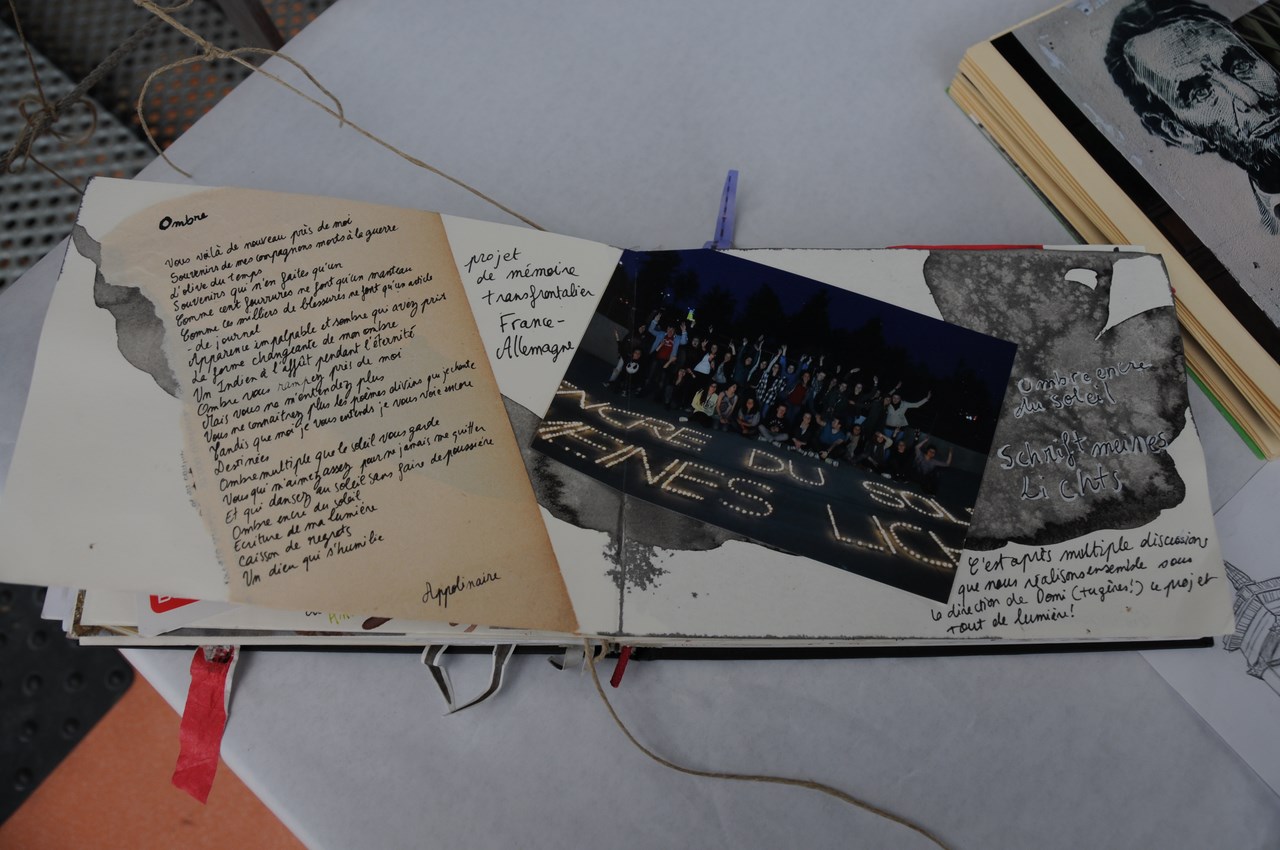 Ombre
Vous voilà de nouveau près de moi
Souvenirs de mes compagnons morts à la guerre
L'olive du temps
Souvenirs qui n'en faites qu'un
Comme cent fourrures ne font qu'un manteau
Comme ces milliers de blessures ne font qu'un article
- de journal
Apparence impalpable et sombre qui avez pris
La forme changeante de mon ombre
Un Indien à l'affût pendant l'éternité
Ombre vous rampez près de moi
Mais vous ne m'entendez plus
Vous ne connaîtrez plus les poèmes divins que je chante
Tandis que moi je vous entends je vous vois encore
Destinées
Ombre multiple que le soleil vous garde
Vous qui m'aimez assez pour ne jamais me quitter
Et qui dansez au soleil sans faire de poussière
Ombre encre du soleil
Ecriture de ma lumière
Caisson de regrets
Un dieu qui s'humilie
Appolinaire
projet
de mémoire
transfrontalier
France-
Allemagne
NCRE DU SOL
MEINES LICH
Ombre encre
du soleil
Schrift meines
Lichts
C'est après multiple discussions
que nous réalisons ensemble sous
la direction de Domi (tugères!) ce projet
tout de lumière!